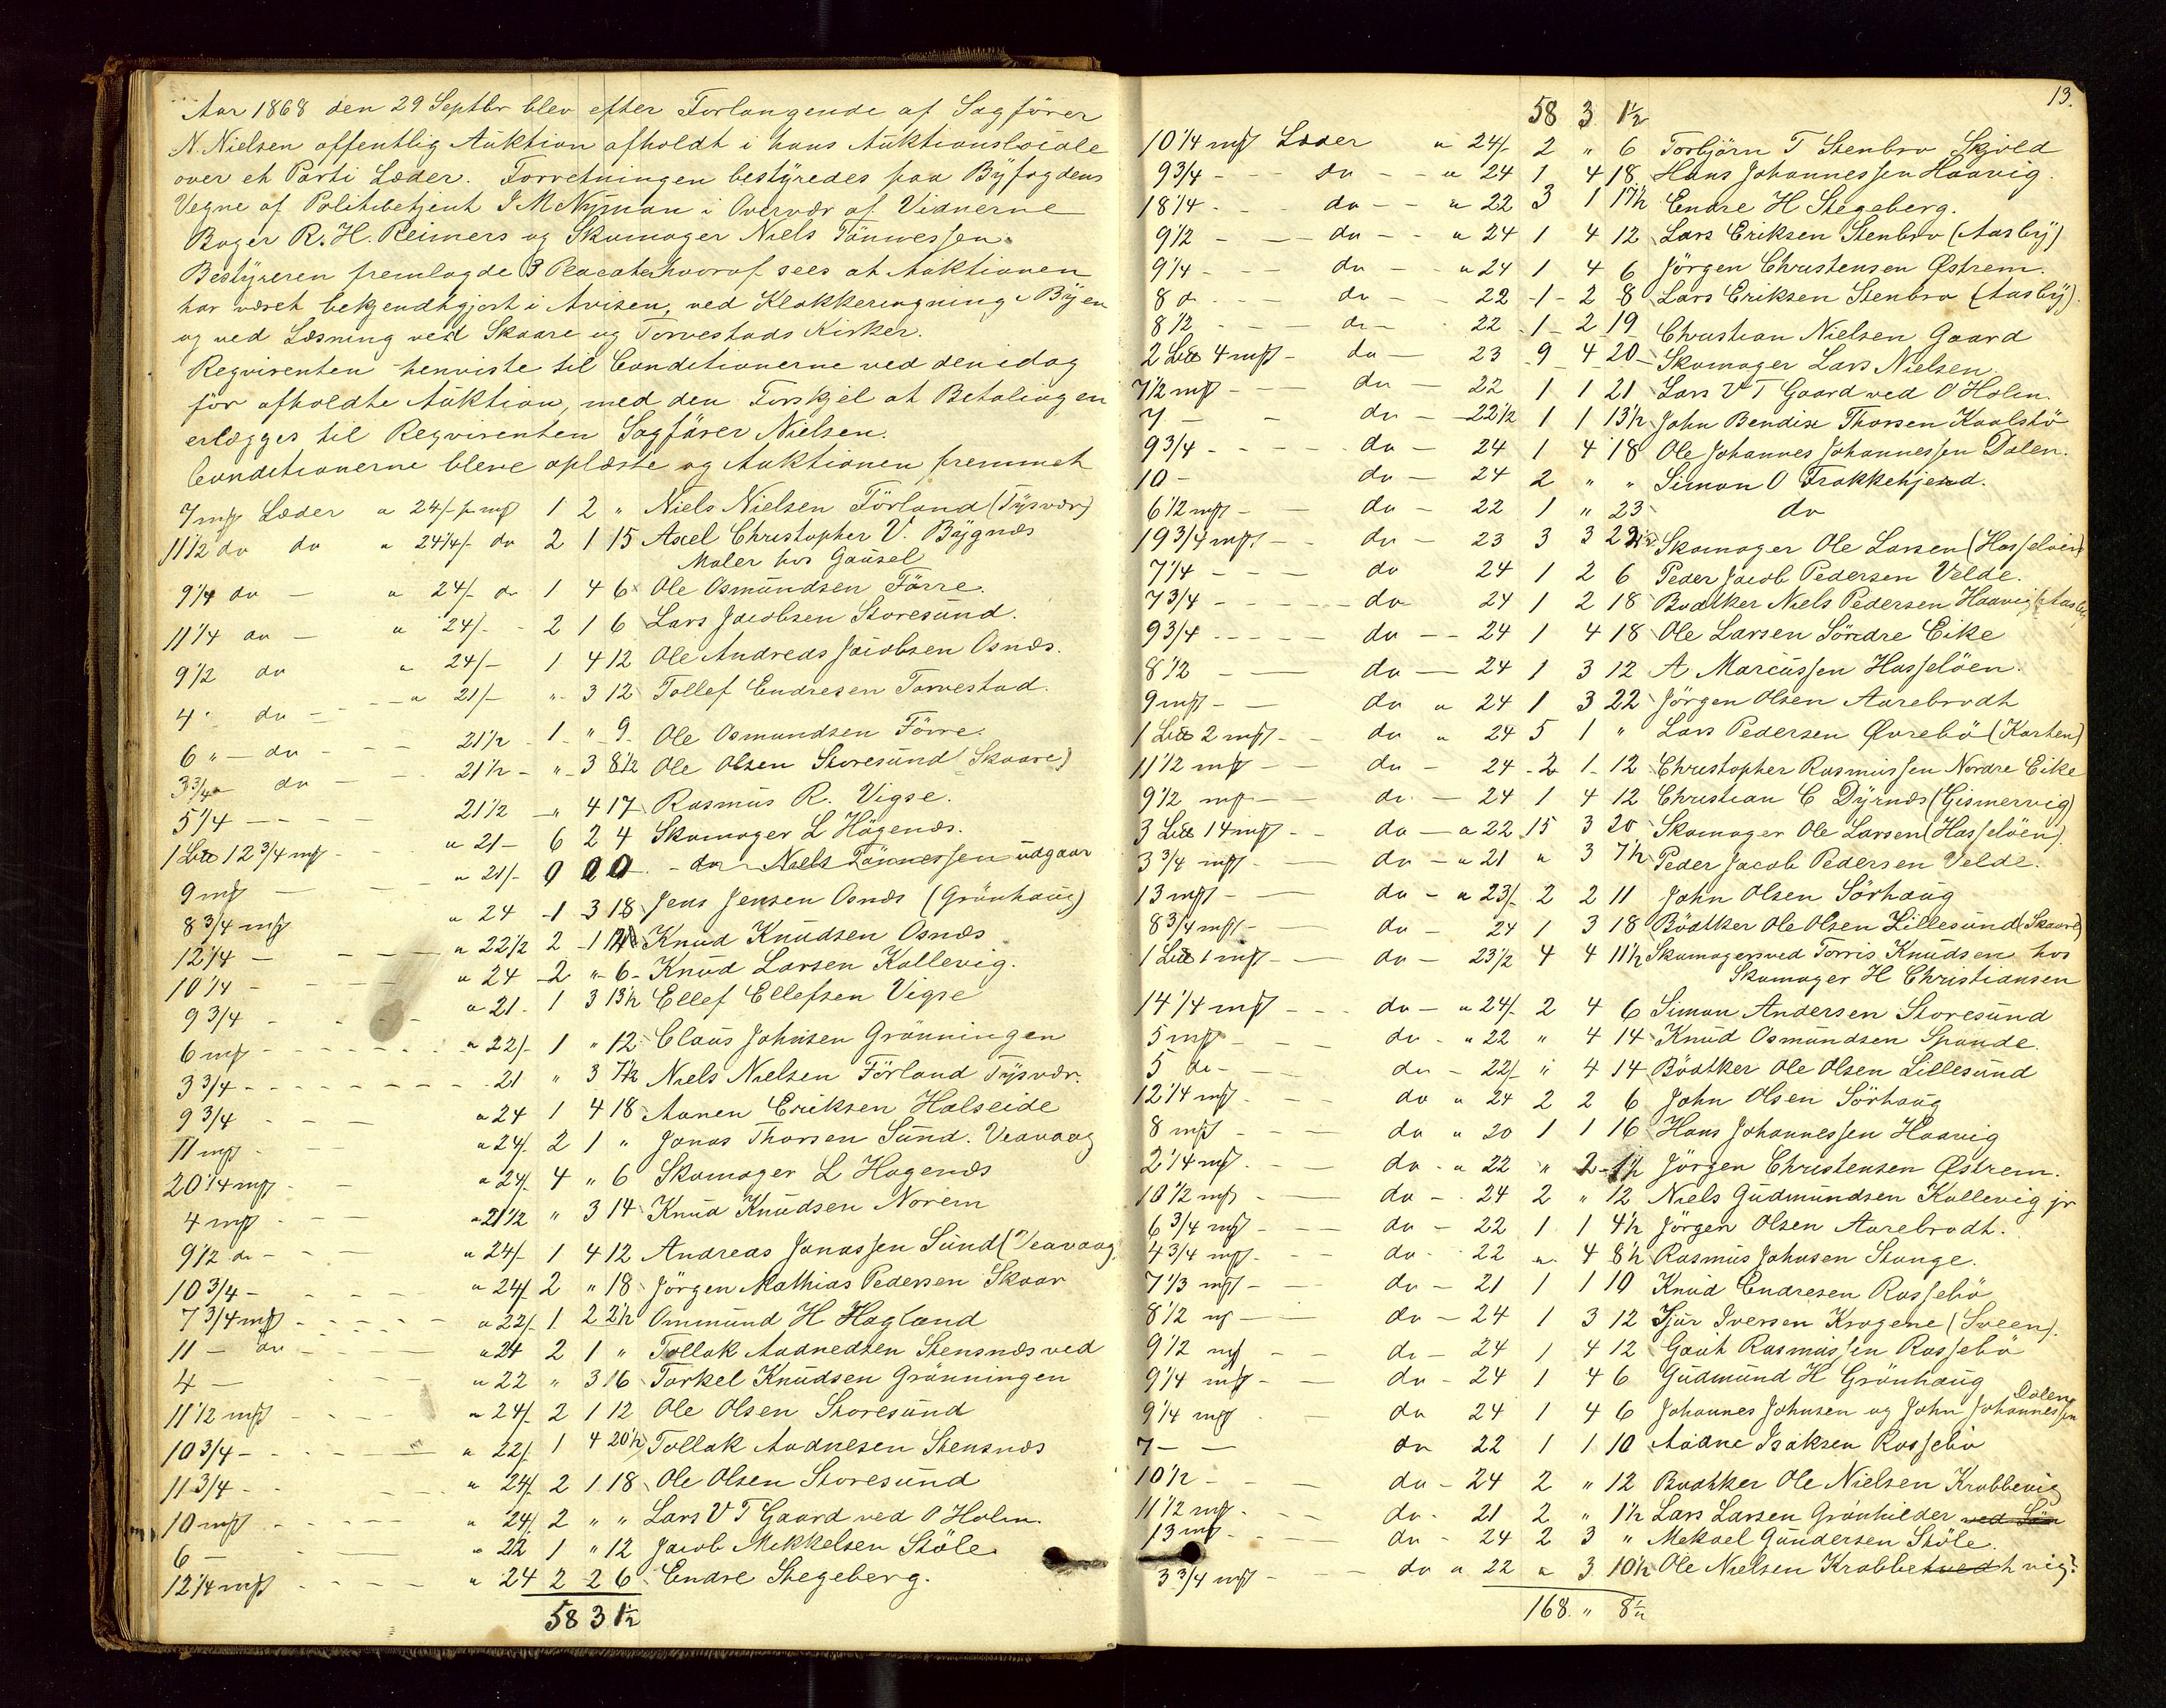 Aar 1868 den 29 Septbr blev efter Forlangende af Sagförer
N. Nielsen offentlig Auktion afholdt i hans Auktionslocale
over et Parti Læder. Forretningen bestyredes paa Byfogdens
Vegne af Politibetjent J M Nyman i Overvær af Vidnerne
Bager R. H. Reimers og Skomager Niels Tönnessen.
Bestyreren fremlagde 3 Placater hvoraf sees at Auktionen
har været bekjendtgjort i Avisen, ved Klokkeringning i Byen
og ved Læsning ved Skaare og Torvestads Kirker.
Reqvirenten henviste til Conditionerne ved den idag
før afholdte Auktion, med den Forskjel at Betalingen
erlægges til Reqvirenten Sagförer Nielsen.
Conditionerne bleve oplæste og Auktionen fremmet
7 mß Læder a 24/- pr mß 1 2 " Niels Nielsen Förland (Tysvær)
11 1/2 do do a 24 1/4/- do 2 1 15 Axel Christopher V. Bygnæs
Maler hos Gausel
9 1/4 do — a 24/- do 1 4 6 Ole Osmundsen Förre.
11 1/4 do — a 24/- - 2 1 6 Lars Jacobsen Storesund.
9 1/2 do a 24/- 1 4 12 Ole Andreas Jacobsen Osnæs.
4 " do — a 21/- " 3 12 Tollef Endresen Torvestad.
6 " — do - - 21 1/2 - 1 " 9 Ole Osmundsen Förre.
3 3/4 do — 21 1/2 - " 3 8 1/2 Ole Olsen Storesund (Skaare)
5 1/4 — - - 21 1/2 — " 4 17 Rasmus R. Vigse.
1 Lið 12 3/4 mß - a 21 - 6 2 4 Skomager L Högenæs.
9 mß — a 21/- 0 0 0 - do Niels Tönnessen udgaar
8 3/4 mß a 24 - 1 3 18 Jens Jensen Osnæs (Grönhaug)
12 1/4 — - a 22 1/2 2 - 1 Knud Knudsen Osnæs
10 1/4 - - a 24 - 2 " 6 - Knud Larsen Kallevig.
9 3/4 - - a 21 - 1 3 13 1/2 Ellef Ellefsen Vigse
6 mß - - a 22/- 1 " 12 Claus Johnsen Grönningen
3 3/4 - - - 21 " 3 7 1/2 Niels Nielsen Förland Tysvær.
9 3/4 - - a 24 1 4 18 Aanen Eriksen Halseide
11 mß - - a 24/- 2 1 " Jonas Thorsen Sund. Veavaag
20 1/4 mß - - a 24/- 4 " 6 Skomager L Hagenæs
4 mß - - - 21 1/2 " 3 14 Knud Knudsen Norem
9 1/2 do - - a 24/- 1 4 12 Andreas Jonassen Sund (Veavaag.
10 3/4 - - a 24/- 2 " 18 Jörgen Mathias Pedersen Skaar
7 3/4 mß - - a 22/- 1 2 2 1/2 Ommund H Hagland
11 — do - - a 24 2 1 " Tollak Aadnedsen Stensnæs ved
4 — - a 22 " 3 16 Torkel Knudsen Grönningen
11 1/2 mß - - a 24/- 2 1 12 Ole Olsen Storesund
10 3/4 - - a 22/- 1 4 20 1/2 Tollak Aadnesen Stensnæs
11 3/4 - - a 24/- 2 1 18 Ole Olsen Storesund
10 mß - - a 24/- 2 " " Lars V T Gaard ved O Holm.
6 — - a 22 1 " 12 Jacob Mikkelsen Stöle
12 1/4 mß - - a 24 2 2 6 Endre Stegeberg.
58 3 1 1/2
13.
58 3 1 1/2
10 1/4 mß Læder a 24/- 2 " 6 Torbjörn T Stenbro Skjold
9 3/4 - - do - - a 24 1 4 18 Hans Johannessen Haavig.
18 1/4 - - do - - a 22 3 1 17 1/2 Endre H Stegeberg.
9 1/2 - - do - - a 24 1 4 12 Lars Eriksen Stenbro (Aasby)
9 1/4 - - do - - a 24 1 4 6 Jörgen Christensen Østrem.
8 do - - do - 22 - 1 - 2 8 Lars Eriksen Stenbro (Aasby).
8 1/2 - - do - 22 - 1 - 2 19 Christian Nielsen Gaard
2 Lið 4 mß - do - 23 9 4 20 - Skomager Lars Nielsen.
7 1/2 mß - - do - 22 1 1 21 Lars V T Gaard ved O Holm.
7 - - do - 22 1/2 1 1 13 1/2 John Bendix Thorsen Kaalstö
9 3/4 - - do - 24 1 4 18 Ole Johannes Johannessen Dalen.
10 - do - 24 2 " " Simon O Frakkehjend.
6 1/2 mß - - do - 22 1 " 23 do
19 3/4 mß - - do - 23 3 3 Skomager Ole Larsen (Hasselöen)
7 1/4 - - do 24 1 2 6 Peder Jacob Pedersen Velde.
7 3/4 - - do 24 1 2 18 Bödtker Niels Pedersen Haavig (Aasby
9 3/4 - - do - - 24 1 4 18 Ole Larsen Söndre Eike
8 1/2 - - do - 24 1 3 12 A Marcussen Hasselöen.
9 mß - - do a 24 1 3 22 Jörgen Olsen Aarebrodt
1 Lið 2 mß - - do a 24 5 1 " Lars Pedersen Øvrebö (Karten)
11 1/2 mß - - do - 24 - 2 1 - 12 Christopher Rasmussen Nordre Eike
9 1/2 mß - do - 24 1 4 12 Christian C Dyrnæs (Gismervig)
3 Lið 14 mß - - do - a 22 15 3 20 Skomager Ole Larsen (Hasselöen).
3 3/4 mß - - do - a 21 " 3 7 1/2 Peder Jacob Pedersen Velde.
13 mß - - do - a 23/- 2 2 11 John Olsen Sörhaug
8 3/4 mß - - do - 24 1 3 18 Bödtker Ole Olsen Lillesund (Skaare)
1 Lið 1 mß - - do - 23 1/2 4 4 11 1/2 Skomagersvend Torris Knudsen hos
Skomager H Christiansen
14 1/4 mß - - do - a 24/- 2 4 6 Simon Andersen Storesund
5 mß - - do - a 22 " 4 14 Knud Osmundsen Spande.
5 do - - do - 22/- " 4 14 Bödtker Ole Olsen Lillesund
12 1/4 mß - - do a 24 2 2 6 John Olsen Sörhaug
8 mß - - do a 20 1 1 16 Hans Johannessen Haavig
2 1/4 mß - - do - a 22 " 2 - 1 1/2 Jörgen Christensen Østrem.
10 1/2 mß - - do - 24 2 " 12 Niels Gudmundsen Kallevig jr
6 3/4 mß - - do - 22 1 1 4 1/2 Jörgen Olsen Aarebrodt.
4 3/4 mß - - do - 22 " 4 8 1/2 Rasmus Johnsen Stange.
7 1/3 mß - - do - 21 1 1 10 Knud Endresen Rossebö
8 1/2 mß - - do - 24 1 3 12 Sjur Iversen Krogene (Sveen).
9 1/2 mß - - do - 24 1 4 12 Gaut Rasmussen Rossebö
9 1/4 mß - - do - 24 1 4 6 Gudmund H Grönhaug
9 1/4 mß - do 24 1 4 6 Johannes Johnsen og John Johannessen Dalen
7 - - do 22 1 1 10 Aadne Isaksen Rossebö
10 1/2 - - do - 24 2 " 12 Bödtker Ole Nielsen Krabbevig
11 1/2 mß - - do - 21 2 " 1 1/2 Lars Larsen Grönhilder ved
13 mß - - do - 24 2 3 " Mekael Gundersen Stöle.
3 3/4 mß - - do a 22 " 3 10 1/2 Ole Nielsen Krabbetvedt vig.
168 " 8 1/2